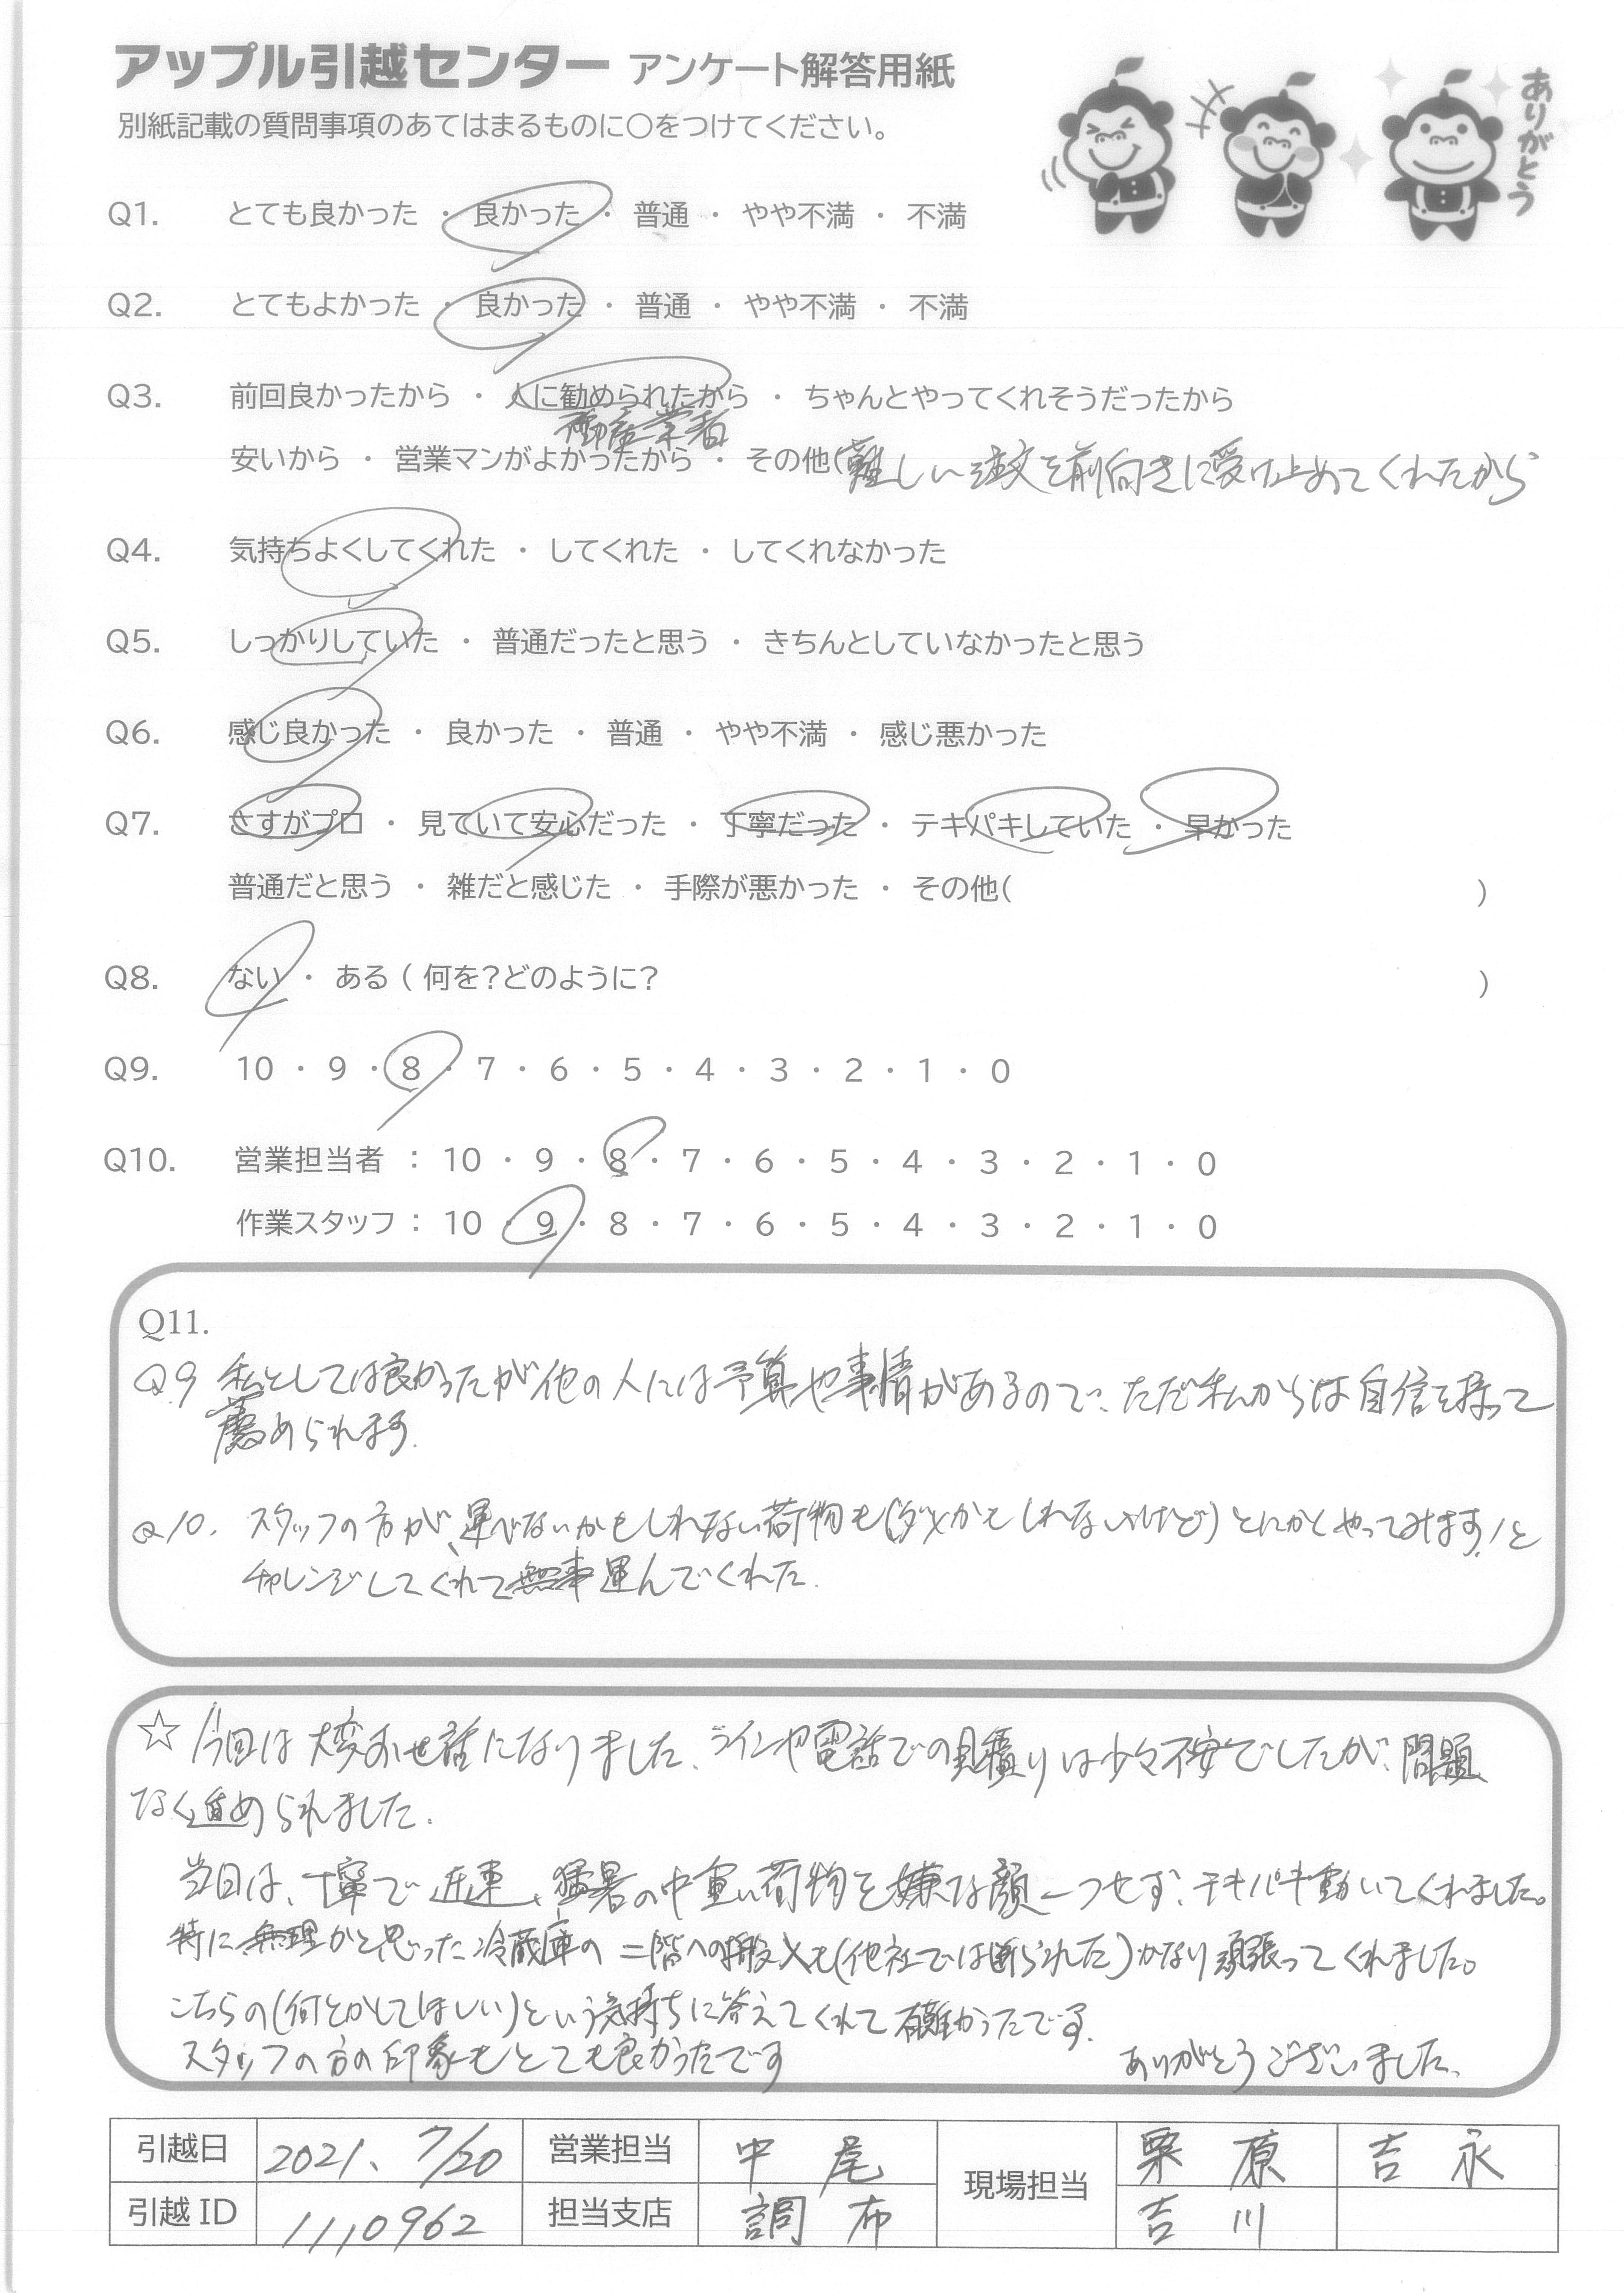 アップル引越センター アンケート解答用紙
ありがとう
別紙記載の質問事項のあてはまるものに〇をつけてください。
Q1. とても良かった ・ 良かった ・ 普通 ・ やや不満 ・ 不満
Q2. とてもよかった ・ 良かった ・ 普通 ・ やや不満 ・ 不満
Q3. 前回良かったから ・ 人に勧められたから ・ ちゃんとやってくれそうだったから
不動産業者
安いから ・ 営業マンがよかったから ・ その他(難しい注文を前向きに受け止めてくれたから
Q4. 気持ちよくしてくれた ・ してくれた ・ してくれなかった
Q5. しっかりしていた ・ 普通だったと思う ・ きちんとしていなかったと思う
Q6. 感じ良かった ・ 良かった ・ 普通 ・ やや不満 ・ 感じ悪かった
Q7. さすがプロ ・ 見ていて安心だった ・ 丁寧だった ・ テキパキしていた ・ 早かった
普通だと思う ・ 雑だと感じた ・ 手際が悪かった ・ その他( )
Q8. ない ・ ある ( 何を?どのように? )
Q9. 10 ・ 9 ・ 8 ・ 7 ・ 6 ・ 5 ・ 4 ・ 3 ・ 2 ・ 1 ・ 0
Q10. 営業担当者 : 10 ・ 9 ・ 8 ・ 7 ・ 6 ・ 5 ・ 4 ・ 3 ・ 2 ・ 1 ・ 0
作業スタッフ : 10 ・ 9 ・ 8 ・ 7 ・ 6 ・ 5 ・ 4 ・ 3 ・ 2 ・ 1 ・ 0
Q11.
Q9 私としては良かったが他の人には予算や事情があるので、ただ私からは自信を持って
薦められます.
Q10. スタッフの方が、運べないかもしれない荷物も(ダメかもしれないけど)とにかくやってみます!と
チャレンジしてくれて無事運んでくれた.
☆今回は大変お世話になりました、ラインや電話での見積りは少々不安でしたが、問題
なく進められました.
当日は、丁寧で迅速、猛暑の中重い荷物を嫌な顔一つせず、テキパキ動いてくれました。
特に無理かと思った冷蔵庫の二階への搬入も(他社では断られた)かなり頑張ってくれました。
こちらの(何とかしてほしい)という気持ちに答えてくれて有難かったです.
スタッフの方の印象もとても良かったです ありがとうございました、
引越日 2021、7/20 営業担当 中尾 現場担当 栗原 吉永
引越ID 1110962 担当支店 調布 吉川